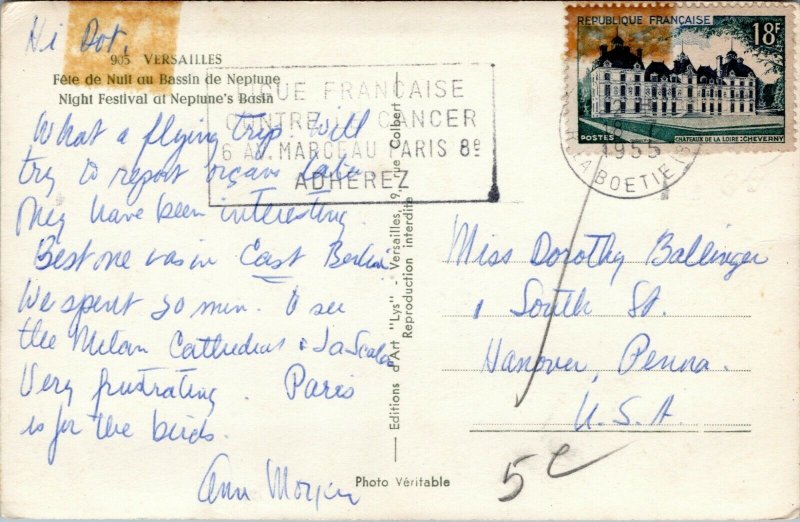 Hi Dot,
905 VERSAILLES
Fête de Nuit au Bassin de Neptune
Night Festival at Neptune's Basin
What a flying trip. Will
try to report organs later.
They have been interesting.
Best one was in East Berlin.
We spent 30 min. to see
the Milan Cathedral & La Scala.
Very frustrating. Paris
is for the birds.
Ann
LIGUE FRANÇAISE
CONTRE LE CANCER
6 AV. MARCEAU PARIS 8e
ADHEREZ
Editions d'Art "Lys" - Versailles, 9, rue Colbert
Reproduction interdite
Photo Véritable
REPUBLIQUE FRANÇAISE 18F
POSTES CHATEAUX DE LA LOIRE : CHEVERNY
18
1955
LA BOETIE
Miss Dorothy Ballinger
1 South St.
Hanover, Penna.
U.S.A.
5c